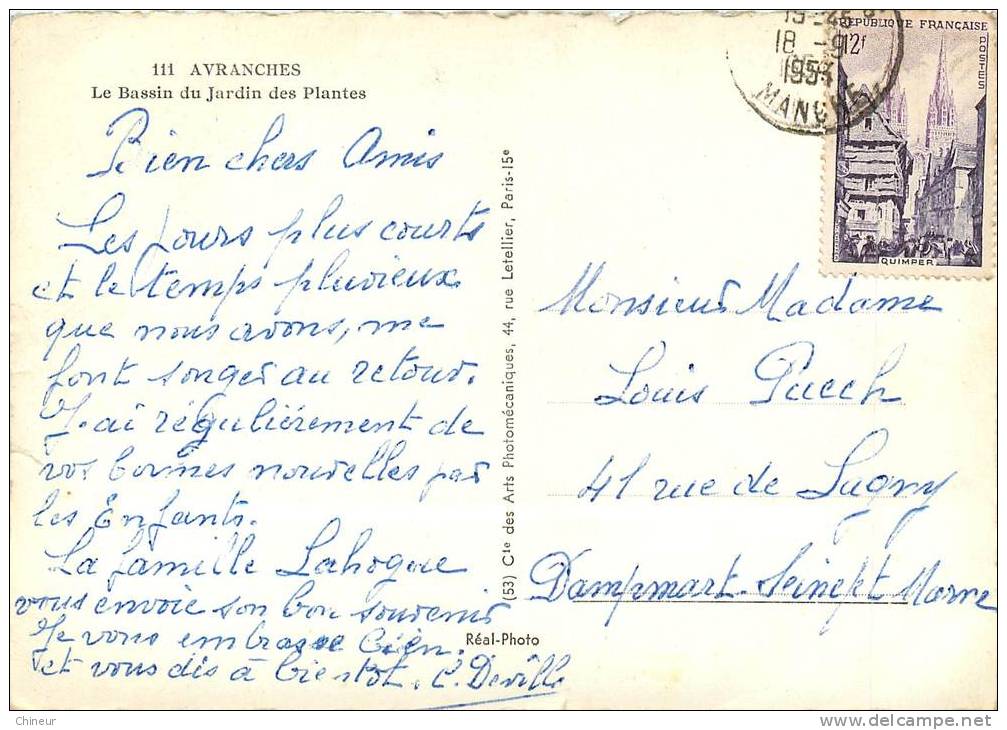 111 AVRANCHES
Le Bassin du Jardin des Plantes
Bien chers Amis
Les jours plus courts
et le temps pluvieux
que nous avons, me
font songer au retour.
J'ai régulièrement de
vos bonnes nouvelles par
les Enfants.
La famille Lahogue
vous envoie son bon souvenir
Je vous embrasse bien.
et vous dis à bientot. C. Deville
Réal-Photo
(53) Cie des Arts Photomécaniques, 44, rue Letellier, Paris-15e
18 -9
1954
MANCHE
RÉPUBLIQUE FRANÇAISE
12f
POSTES
QUIMPER
Monsieur Madame
Louis Puech
41 rue de Lagny
Dampmart. Seine et Marne
Chineur
www.delcampe.net